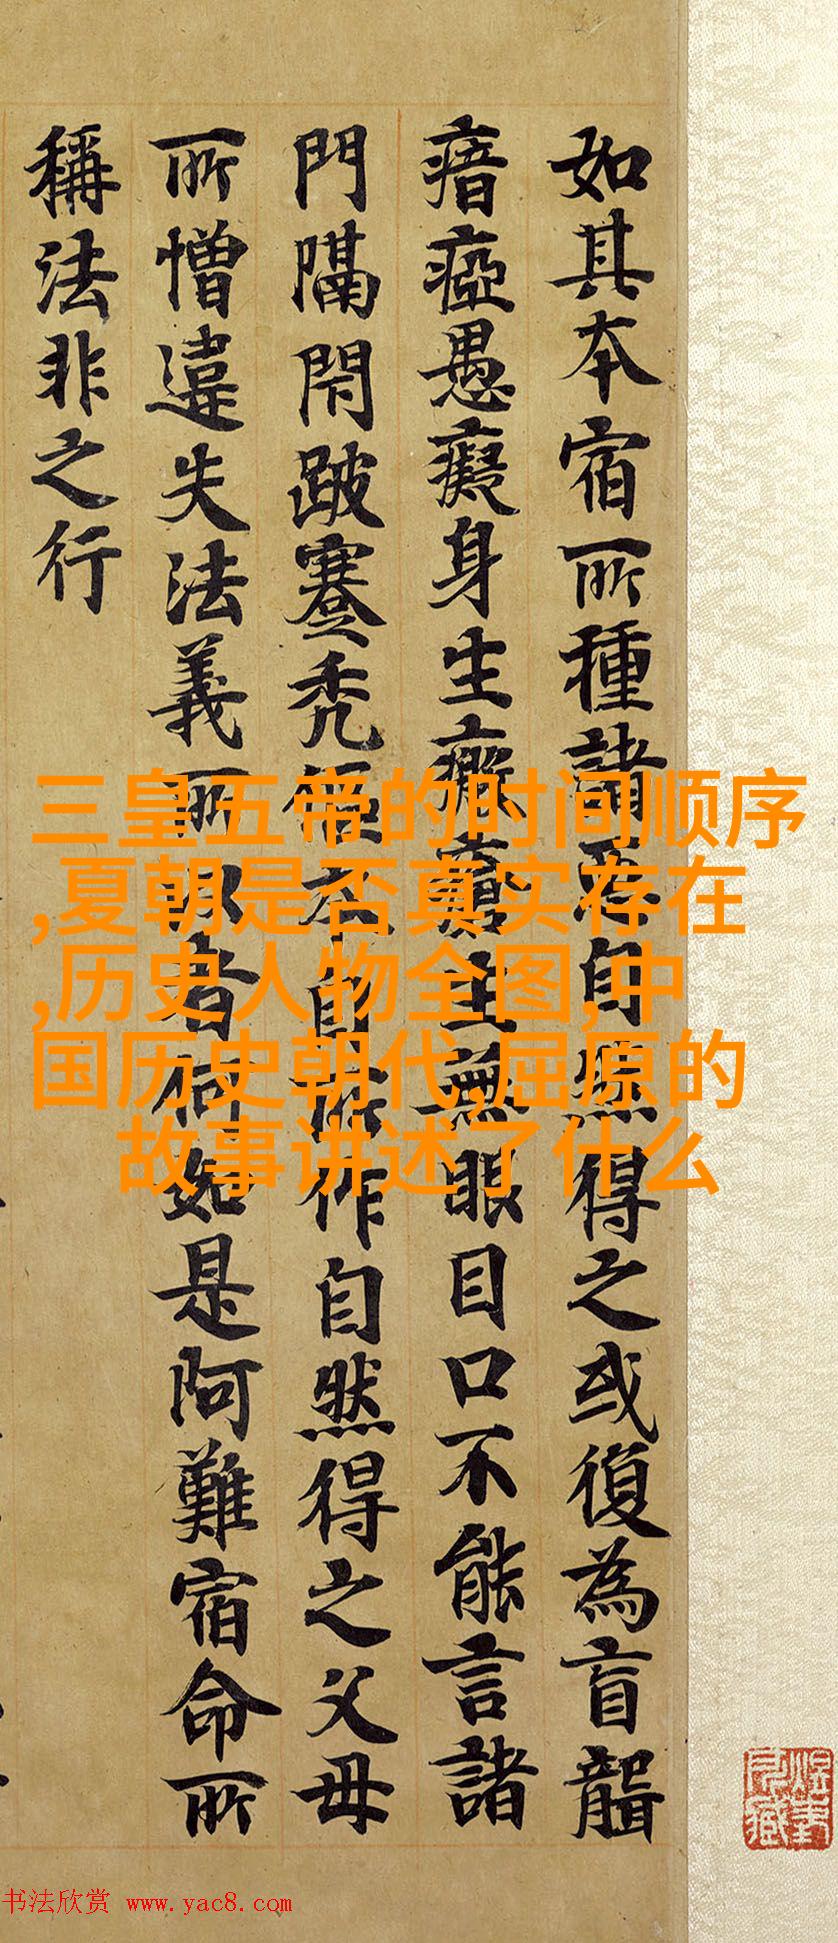 如其本宿所種諸惡自然得之或復為盲聾
瘖瘂愚癡身生瘡生無眼目口不能言諸
門隔閇跛蹇禿傴本自所作自然得之父母
所憎違失法義所以者何如是阿難宿命所
稱法非之行
三皇五帝的时间顺序
,夏朝是否真实存在
,历史人物全图,中
国历史朝代,屈原的
故事讲述了什么
书法欣赏 www.yac8.com